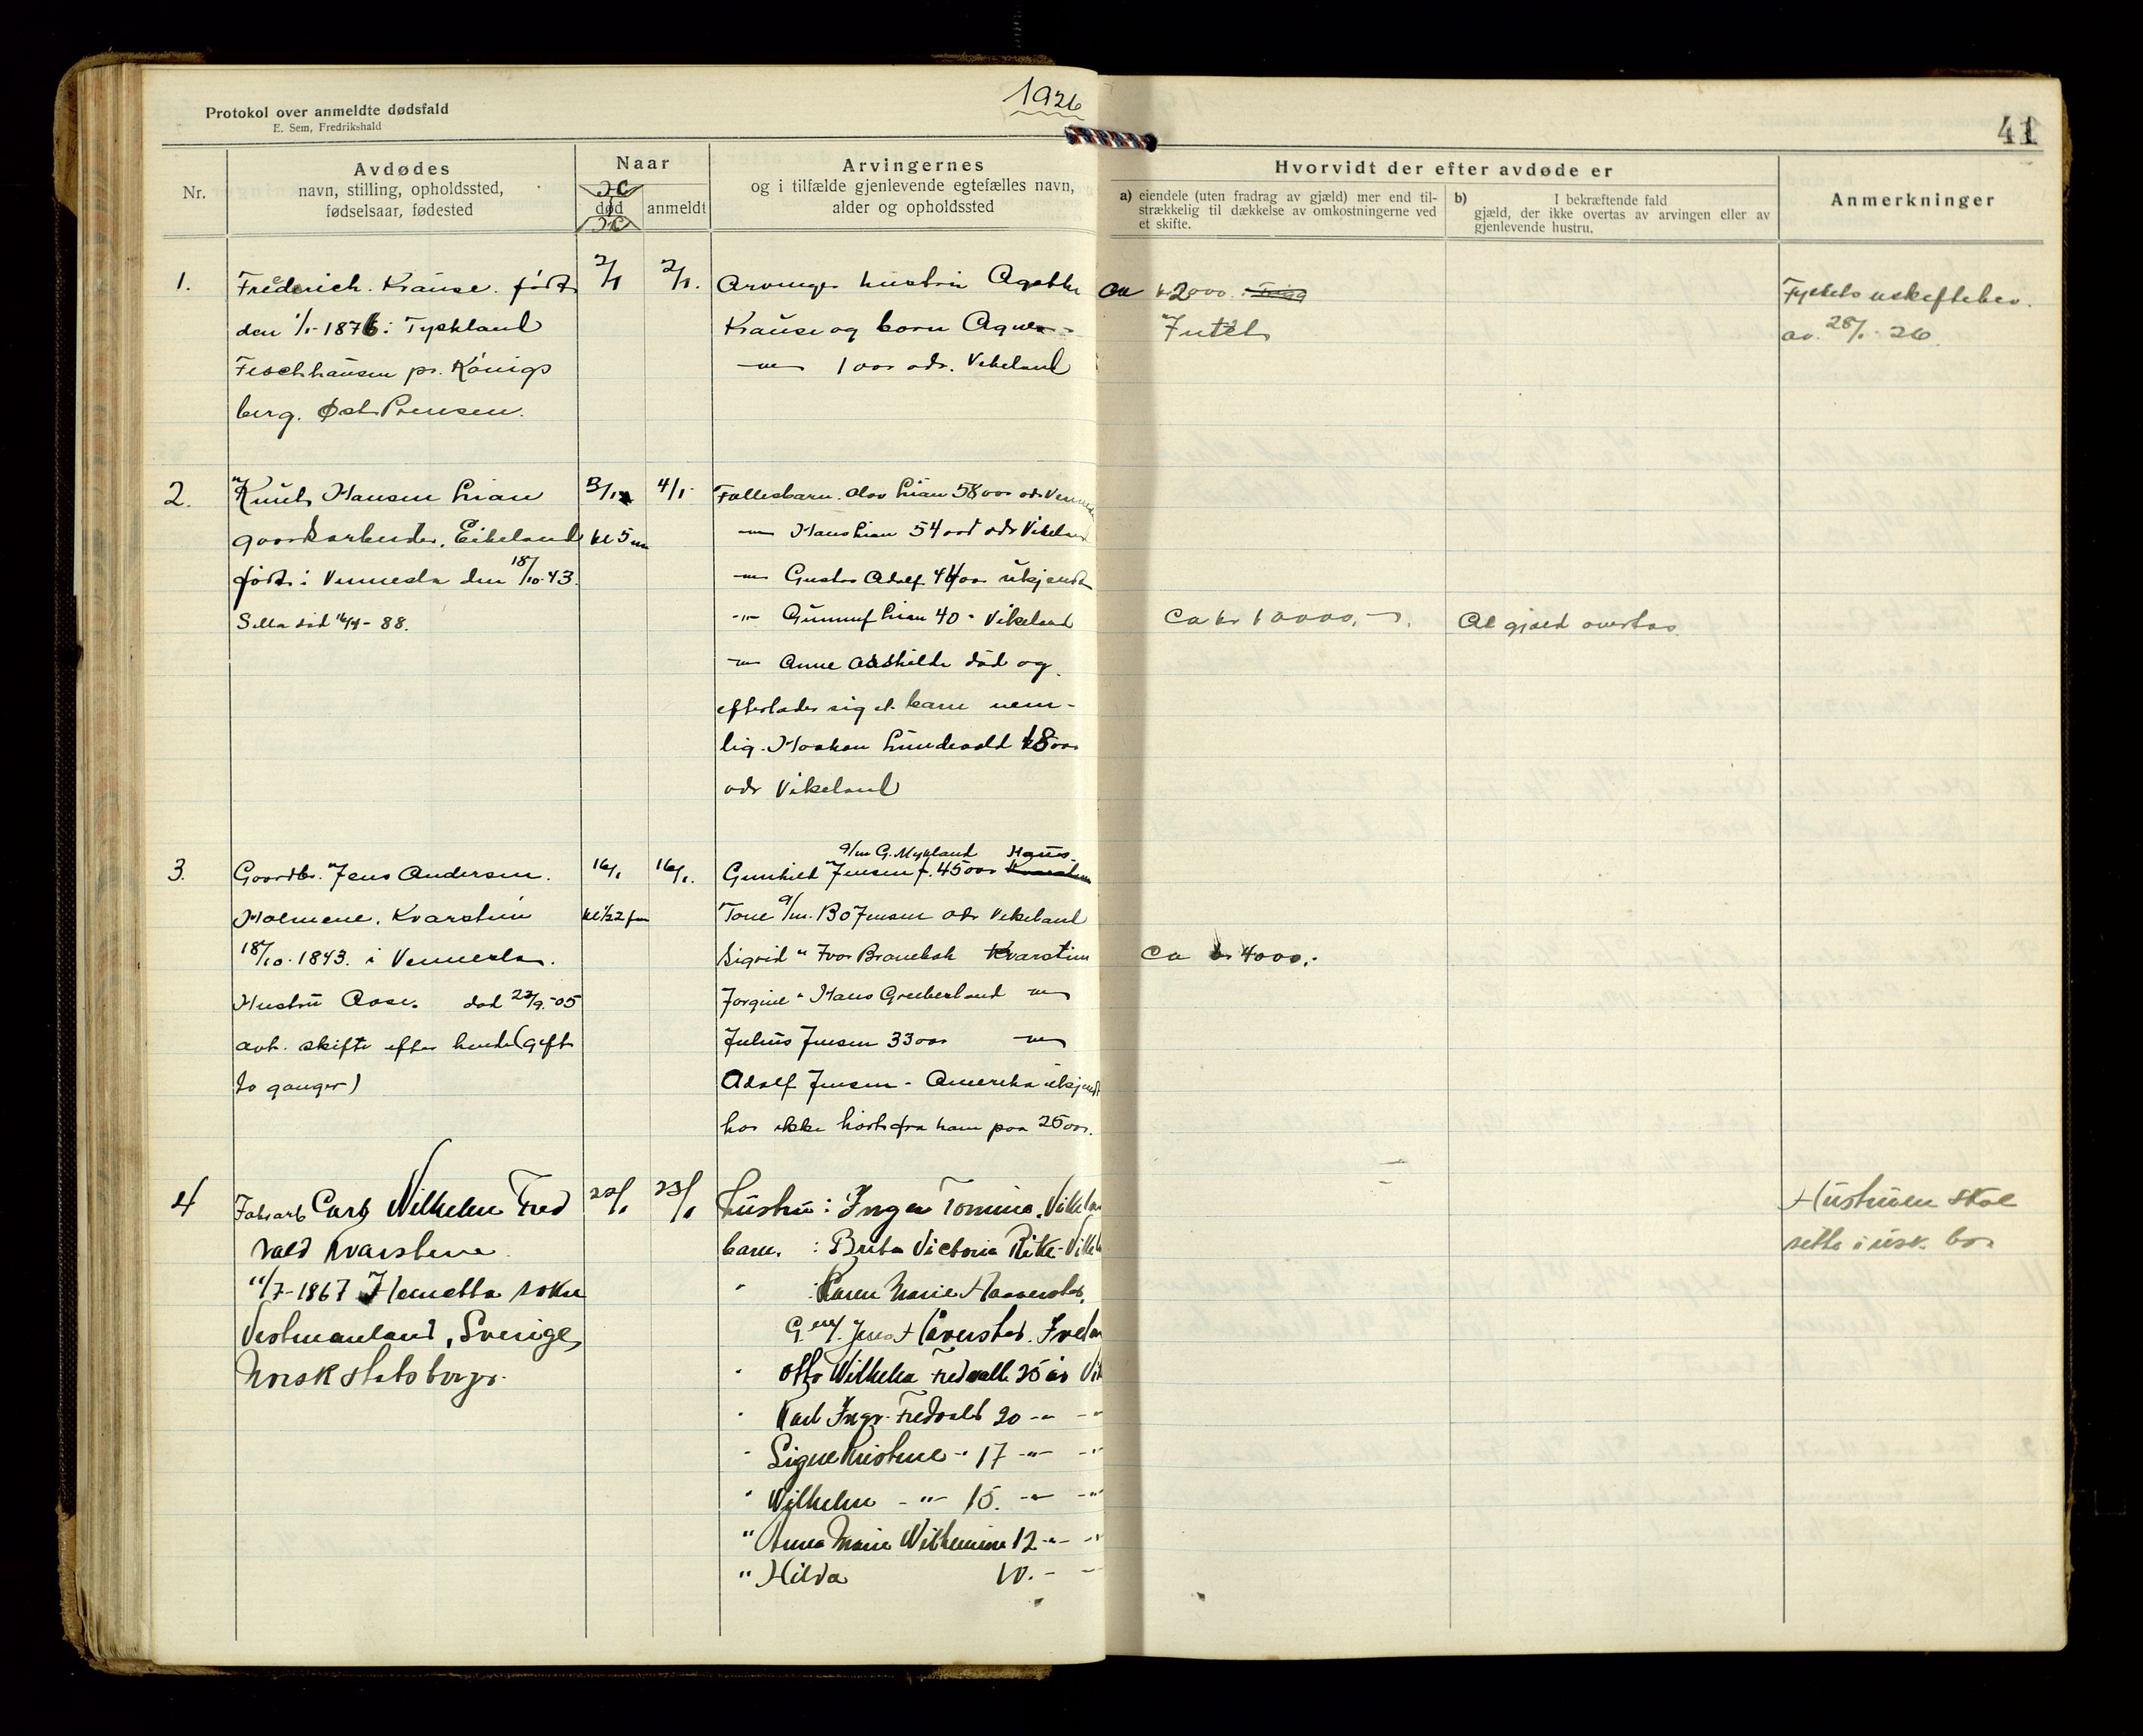 1926
41
Protokol over anmeldte dødsfald
E. Sem, Fredrikshald
Nr.
Avdødes
navn, stilling, opholdssted,
fødselsaar, fødested
Naar
død
anmeldt
Arvingernes
og i tilfælde gjenlevende egtefælles navn,
alder og opholdssted
Hvorvidt der efter avdøde er
a) eiendele (uten fradrag av gjæld) mer end til-
strækkelig til dækkelse av omkostningerne ved
et skifte.
b) I bekræftende fald
gjæld, der ikke overtas av arvingen eller av
gjenlevende hustru.
Anmerkninger
1.
Frederich. Krause. født
den 1/1-1876 i Tyskland
Fischhausen pr. Königs
berg. Øst Preusen.
2/1
2/1.
Arvinger hustru Agathe
Krause og barn Agnes
-"- 1 aar adr. Vikeland
ca kr 2000.
Intet
uskiftebev.
av. 28/1. 26.
2.
Knut Hansen Lian
gaardsarbeider, Eikeland
født i Vennesla den 18/10-43.
død 16/4-88.
3/1
kl 5
4/1
Fællesbarn. Olav Lian 58 aar adr Vennesla
-"- Hans Lian 54 aar adr Vikeland
-"- Gustav Adolf 44 aar ukjendt
-"- Gunnuf Lian 40 - Vikeland
-"- Anne Aashilde død og
efterlader sig et barn nem-
lig. Haakon Lundevold 18 aar
adr Vikeland
ca kr 10000,-
Al gjæld overtas
3.
Gaardbr. Jens Andersen.
Holmene, Kvarstein
18/10-1843. i Vennesla.
Hustru Aase. død 23/9-05
avh. skifte efter hende (gift
to ganger)
16/1
kl 1/2 2 fm
16/1.
g/m G. Mykland Hægeb.
Gunhild Jensen f. 45 aar Kvarstein
Tone g/m. Bo Jensen adr Vikeland
Sigrid " Ivar Kvarstein
Jorgine " Hans Greiberland -"-
Julius Jensen 33 aar -"-
Adolf Jensen - Amerika ukjendt
har ikke hørt fra ham paa 25 aar.
ca kr 4000.-
4
Fabrarb Carl Wilhelm Fred
vald Kvarstein
11/7-1867 sokn
Vestmanland, Sverige,
Norsk statsborger.
22/1
23/1
Hustru: Inga Tomine. Vikelan
barn. : Brita Victoria Rike - Vikel
" Karen Marie Haaverstad.
G. m/. Jens Håverstad.
" Otto Wilhelm Fredvall 25 år Vik
" Karl Ingv. Fredvald 20 -"- -"-
" Signe Kristine -"- 17 -"- -"-
" Wilhelm -"- 15. -"- -"-
" Anna Marie Wilhelmine 12 -"- -"-
" Hilda 10. - -
Hustruen skal
sitte i usk. bo.